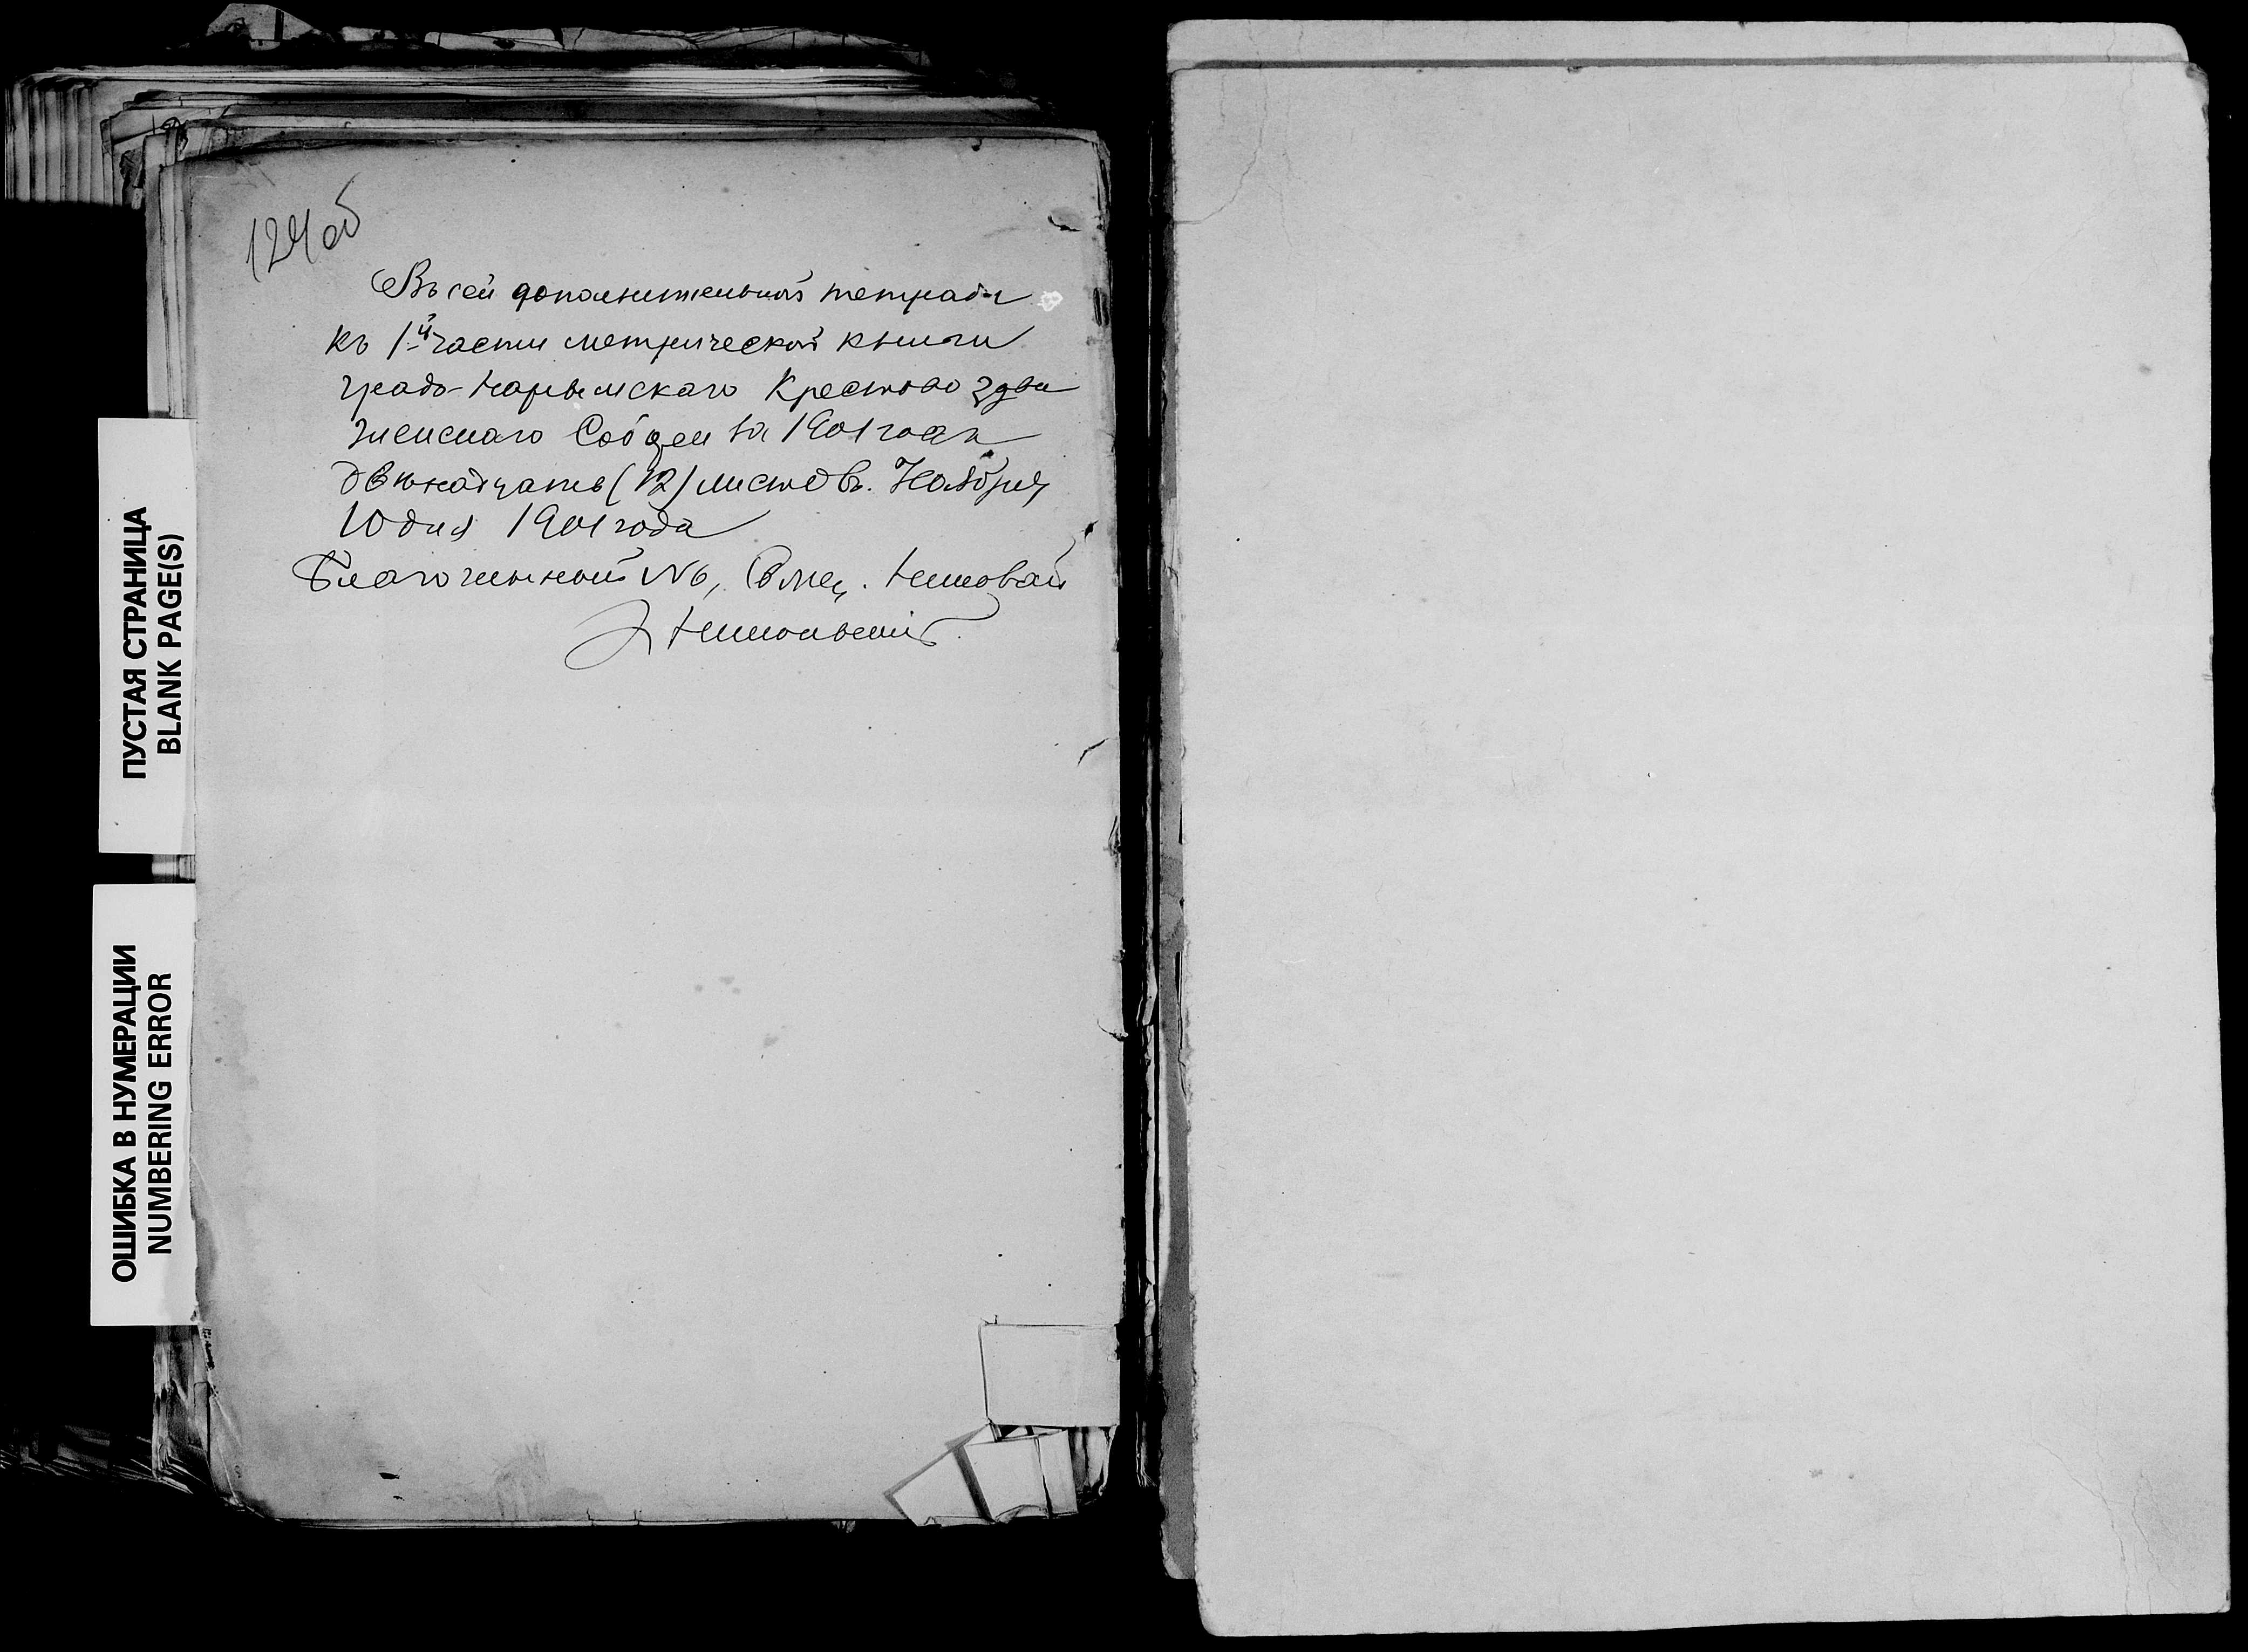 124 об
Въ сей дополнительной тетради
къ 1-й части метрической книги
градо-Нарымскаго Крестовоздви
женскаго Собора за 1901 годъ
двѣнадцать (12) листовъ. Ноября
10 дня 1901 года
Благочинный №6, Свящ. Николай
Никольскій
ПУСТАЯ СТРАНИЦА
BLANK PAGE(S)
ОШИБКА В НУМЕРАЦИИ
NUMBERING ERROR